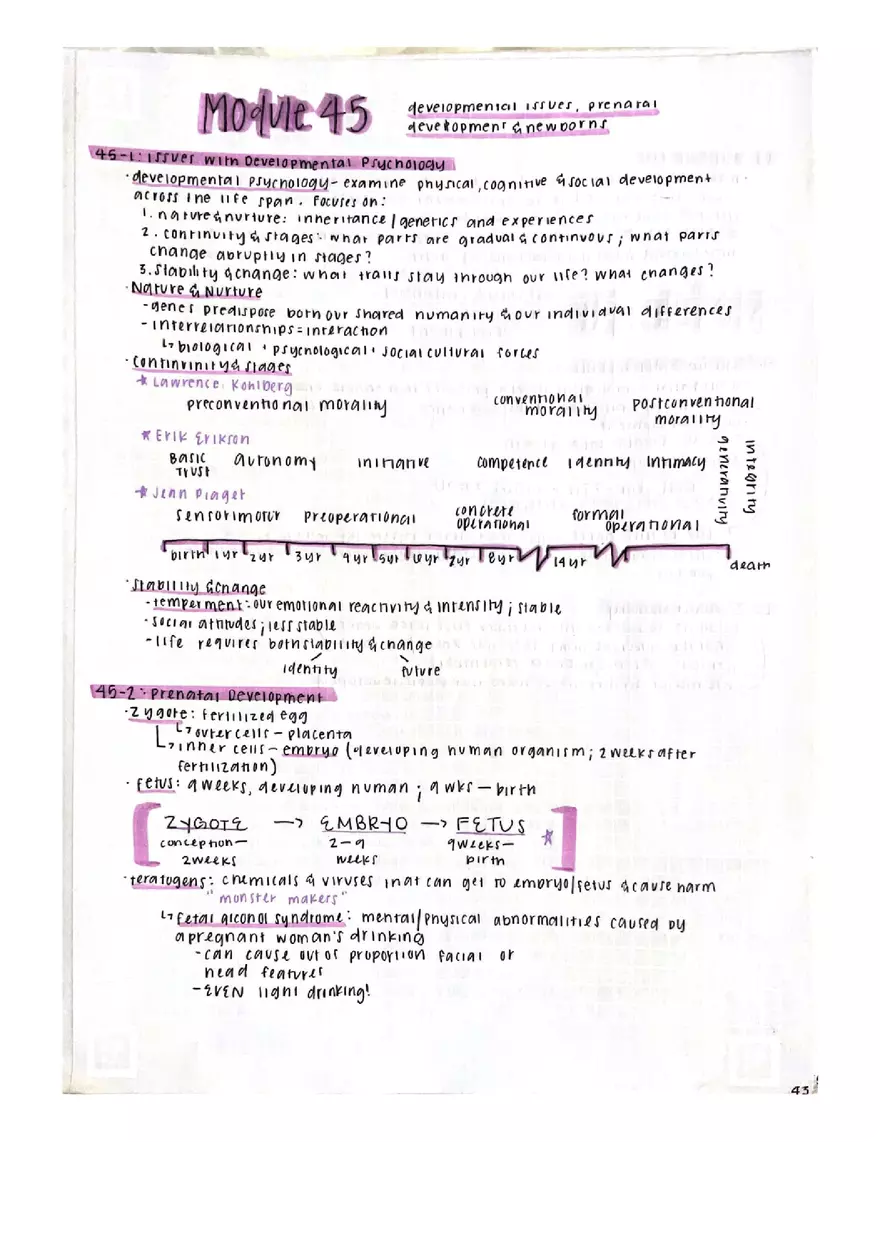 Module 45
developmental issues, prenatal
development & newborns
45-1: Issues with Developmental Psychology
· developmental psychology - examine physical, cognitive & social development
across the life span. focuses on:
1. nature & nurture: inheritance / genetics and experiences
2. continuity & stages: what parts are gradual & continuous; what parts
change abruptly in stages?
3. Stability & change: what traits stay through our life? what changes?
· Nature & Nurture
- genes predispose both our shared humanity & our individual differences
- interrelationships = interaction
↳ biological + psychological + social cultural forces
· Continuity & stages
★ Lawrence Kohlberg
preconventional morality conventional morality postconventional morality
★ Erik Erikson
Basic trust autonomy initiative competence identity intimacy generativity integrity
★ Jean Piaget
sensorimotor preoperational concrete operational formal operational
birth 1 yr 2 yr 3 yr 4 yr 5yr 6 yr 7yr 8yr 14 yr death
· Stability & change
- temperment: our emotional reactivity & intensity; stable
- social attitudes; less stable
- life requires both stability & change
identity future
45-2: Prenatal Development
· Zygote: fertilized egg
↳ outer cells - placenta
↳ inner cells - embryo (developing human organism; 2 weeks after
fertilization)
· fetus: 9 weeks, developing human; 9 wks — birth
ZYGOTE → EMBRYO → FETUS ★
conception — 2-9 9 weeks —
2 weeks weeks birth
· teratogens: chemicals & viruses that can get to embryo/fetus & cause harm
"monster makers"
↳ fetal alcohol syndrome: mental/physical abnormalities caused by
a pregnant woman's drinking
- can cause out of proportion facial or
head features
- EVEN light drinking!
43